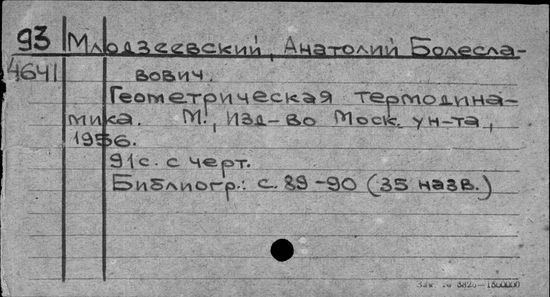 93 Млодзеевский, Анатолий Болесла-
4641 вович.
Геометрическая термодина-
мика. М., Изд-во Моск. ун-та,
1956.
91 с. с черт.
Библиогр.: с. 89-90 (35 назв.)